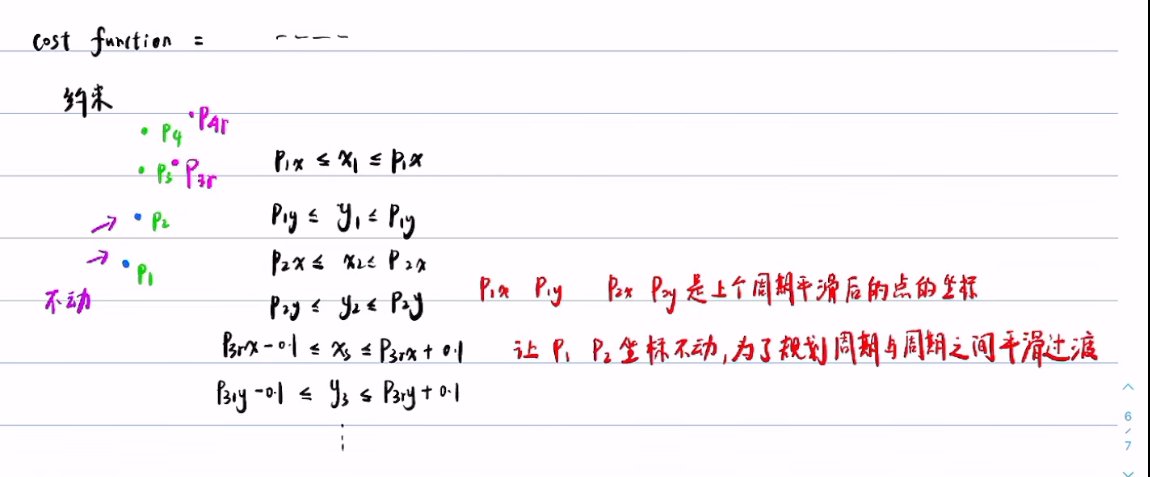 cost function = ----
约束
P4 P4r
P3 P3r
P2
P1
不动
P1x ≤ x1 ≤ P1x
P1y ≤ y1 ≤ P1y
P2x ≤ x2 ≤ P2x
P2y ≤ y2 ≤ P2y
P3rx-0.1 ≤ x3 ≤ P3rx+0.1
P3ry-0.1 ≤ y3 ≤ P3ry+0.1
⋮
P1x P1y P2x P2y是上个周期平滑后的点的坐标
让 P1 P2坐标不动,为了规划周期与周期之间平滑过渡
6
/
7